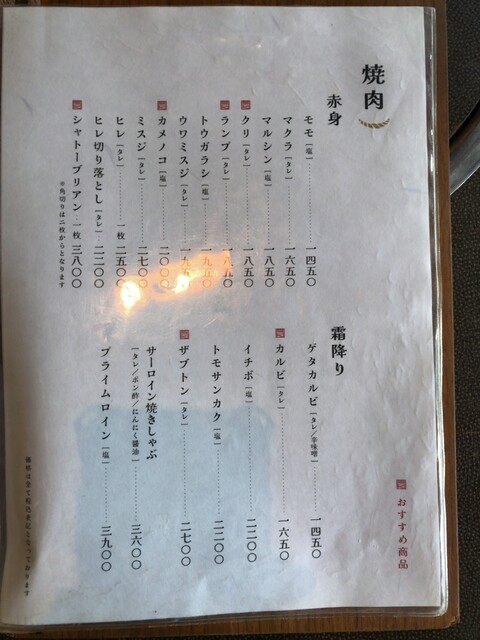 焼肉
赤身
モモ［塩］ 一四五〇
マクラ［タレ］ 一六五〇
マルシン［タレ］ 一八五〇
クリ［タレ］ 一八五〇
ランプ［タレ］ 一八五〇
トウガラシ［塩］ 一九五〇
ウワミスジ［タレ］
カメノコ［塩］ 二〇〇〇
ミスジ［タレ］ 二七〇〇
ヒレ［タレ］ 一枚 二五〇〇
ヒレ切り落とし［タレ］ 二二〇〇
シャトーブリアン 一枚 三八〇〇
※角切りは二枚からとなります
霜降り
ゲタカルビ［タレ／辛味噌］ 一四五〇
カルビ［タレ］ 一六五〇
イチボ［塩］ 二二〇〇
トモサンカク［塩］ 二二〇〇
ザブトン［タレ］ 二七〇〇
サーロイン焼きしゃぶ
［タレ／ポン酢／にんにく醤油］ 三六〇〇
プライムロイン［塩］ 三九〇〇
おすすめ商品
価格は全て税込表記となっております